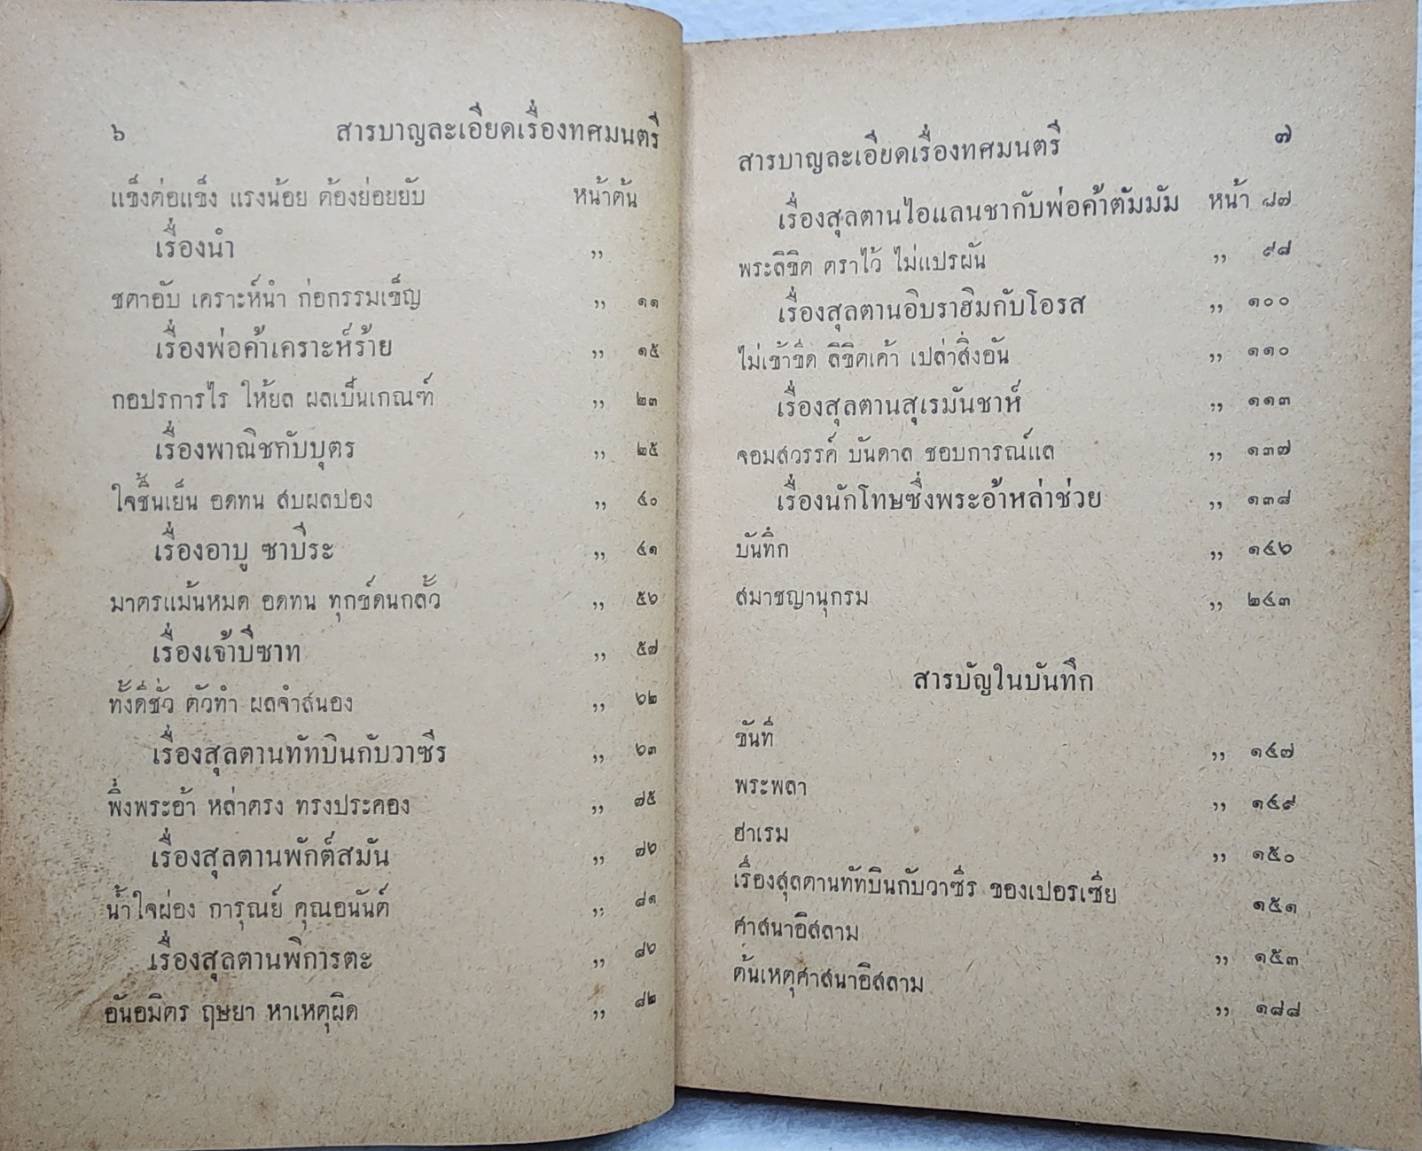 ๖ สารบาญละเอียดเรื่องทศมนตรี
แข็งต่อแข็ง แรงน้อย ต้องย่อยยับ หน้าต้น
เรื่องนำ ,,
ชตาอับ เคราะห์นำ ก่อกรรมเข็ญ ,, ๑๑
เรื่องพ่อค้าเคราะห์ร้าย ,, ๑๕
กอปรการไร ให้ยล ผลเป็นเกณฑ์ ,, ๒๓
เรื่องพาณิชกับบุตร ,, ๒๕
ใจชื้นเย็น อดทน สบผลปอง ,, ๔๐
เรื่องอาบู ซาบีระ ,, ๔๑
มาตรแม้นหมด อดทน ทุกข์ดนกลั้ว ,, ๕๖
เรื่องเจ้าบีซาท ,, ๕๗
ทั้งดีชั่ว ตัวทำ ผลจำสนอง ,, ๖๒
เรื่องสุลตานทัทบินกับวาซีร ,, ๖๓
พึ่งพระอ้า หล่าตรง ทรงประคอง ,, ๗๕
เรื่องสุลตานพักต์สมัน ,, ๗๖
น้ำใจผ่อง การุณย์ คุณอนันต์ ,, ๘๑
เรื่องสุลตานพิการตะ ,, ๘๖
อันอมิตร ฤษยา หาเหตุผิด ,, ๘๒
สารบาญละเอียดเรื่องทศมนตรี ๗
เรื่องสุลตานไอแลนชากับพ่อค้าตัมมัม หน้า ๘๗
พระลิขิต ตราไว้ ไม่แปรผัน ,, ๙๘
เรื่องสุลตานอิบราฮิมกับโอรส ,, ๑๐๐
ไม่เข้าขีด ลิขิตเค้า เปล่าสิ่งอัน ,, ๑๑๐
เรื่องสุลตานสุเรมันชาห์ ,, ๑๑๓
จอมสวรรค์ บันดาล ชอบการณ์แล ,, ๑๓๗
เรื่องนักโทษซึ่งพระอ้าหล่าช่วย ,, ๑๓๘
บันทึก ,, ๑๔๖
สมาชญานุกรม ,, ๒๔๓
สารบัญในบันทึก
ขันที ,, ๑๔๗
พระพลา ,, ๑๔๙
ฮาเรม ,, ๑๕๐
เรื่องสุลตานทัทบินกับวาซีร ของเปอรเซีย ๑๕๑
ศาสนาอิสลาม ,, ๑๕๓
ต้นเหตุศาสนาอิสลาม ,, ๑๘๘